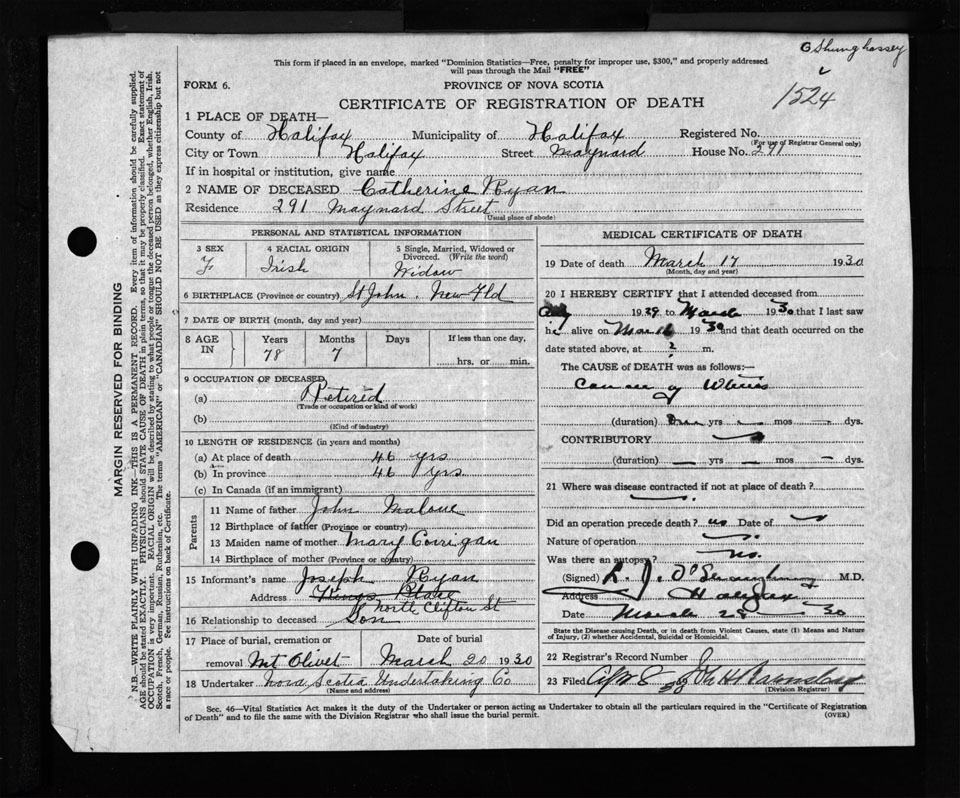 G Shunghassey
1524
This form if placed in an envelope, marked "Dominion Statistics—Free, penalty for improper use, $300," and properly addressed
will pass through the Mail "FREE"
FORM 6.
PROVINCE OF NOVA SCOTIA
CERTIFICATE OF REGISTRATION OF DEATH
1 PLACE OF DEATH—
County of Halifax Municipality of Halifax Registered No.
(For use of Registrar General only)
City or Town Halifax Street Maynard House No. 291
If in hospital or institution, give name
2 NAME OF DECEASED Catherine Ryan
Residence 291 Maynard Street
(Usual place of abode)
PERSONAL AND STATISTICAL INFORMATION
3 SEX 4 RACIAL ORIGIN 5 Single, Married, Widowed or
Divorced. (Write the word)
F Irish Widow
6 BIRTHPLACE (Province or country) St John. New Fld
7 DATE OF BIRTH (month, day and year)
8 AGE IN Years Months Days If less than one day,
78 7 hrs. or min.
9 OCCUPATION OF DECEASED
(a) Retired
(Trade or occupation or kind of work)
(b)
(Kind of industry)
10 LENGTH OF RESIDENCE (in years and months)
(a) At place of death 46 yrs
(b) In province 46 yrs
(c) In Canada (if an immigrant)
Parents
11 Name of father John Malone
12 Birthplace of father (Province or country)
13 Maiden name of mother Mary Corrigan
14 Birthplace of mother (Province or country)
15 Informant's name Joseph Ryan
Address Kings Place
North Clifton St
16 Relationship to deceased Son
17 Place of burial, cremation or Date of burial
removal Mt Olivet March 20 1930
18 Undertaker Nova Scotia Undertaking Co
(Name and address)
MEDICAL CERTIFICATE OF DEATH
19 Date of death March 17 1930
(Month, day and year)
20 I HEREBY CERTIFY that I attended deceased from
1929 to March 1930 that I last saw
h alive on March 1930 and that death occurred on the
date stated above, at ? m.
The CAUSE of DEATH was as follows:—
Cancer of Uterus
(duration) yrs mos dys.
CONTRIBUTORY
(duration) — yrs — mos — dys.
21 Where was disease contracted if not at place of death?
Did an operation precede death? no Date of
Nature of operation
Was there an autopsy? No.
(Signed) M.D.
Address Halifax
Date March 28 30
State the Disease causing Death, or in death from Violent Causes, state (1) Means and Nature
of Injury, (2) whether Accidental, Suicidal or Homicidal.
22 Registrar's Record Number
23 Filed Apr 8 30
(Division Registrar)
Sec. 46—Vital Statistics Act makes it the duty of the Undertaker or person acting as Undertaker to obtain all the particulars required in the "Certificate of Registration
of Death" and to file the same with the Division Registrar who shall issue the burial permit.
(OVER)
MARGIN RESERVED FOR BINDING
N.B.—WRITE PLAINLY WITH UNFADING INK—THIS IS A PERMANENT RECORD. Every item of information should be carefully supplied.
AGE should be stated EXACTLY. PHYSICIANS should STATE CAUSE OF DEATH in plain terms, so that it may be properly classified. Exact statement of
OCCUPATION is very important. RACIAL ORIGIN will be described by stating to what people or tongue the deceased person belonged, whether English, Irish,
Scotch, French, German, Russian, Ruthenian, etc. The terms "AMERICAN" or "CANADIAN" SHOULD NOT BE USED as they express citizenship but not
a race or people. See instructions on back of Certificate.